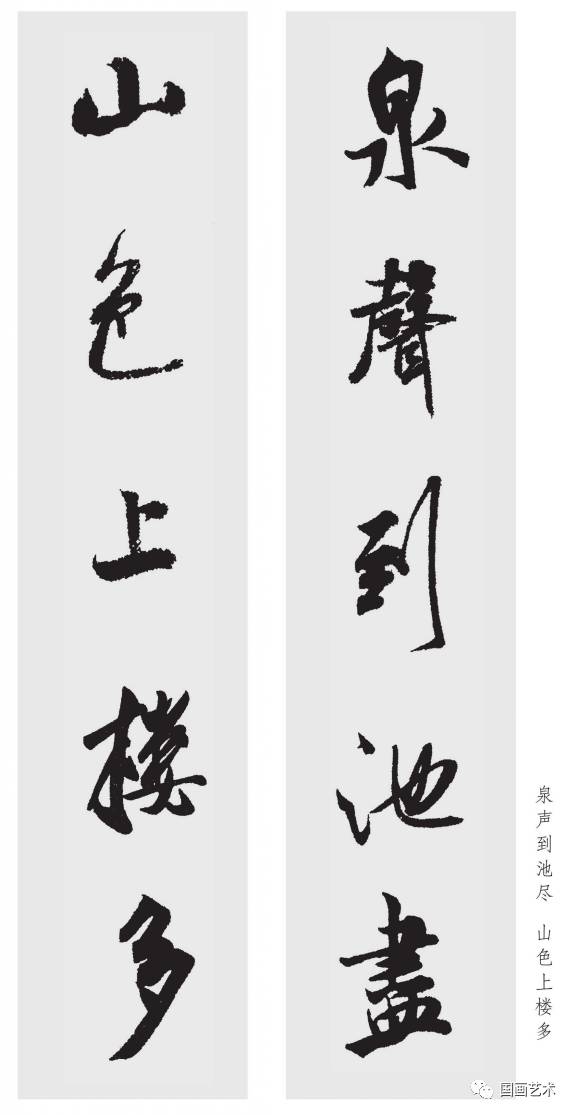 泉聲到池盡
山色上楼多
泉声到池尽 山色上楼多
国画艺术